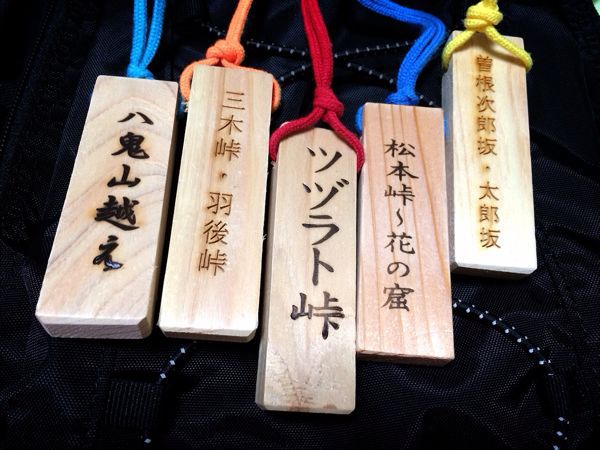 八鬼山越え
三木峠・羽後峠
ツヅラト峠
松本峠～花の窟
曽根次郎坂・太郎坂